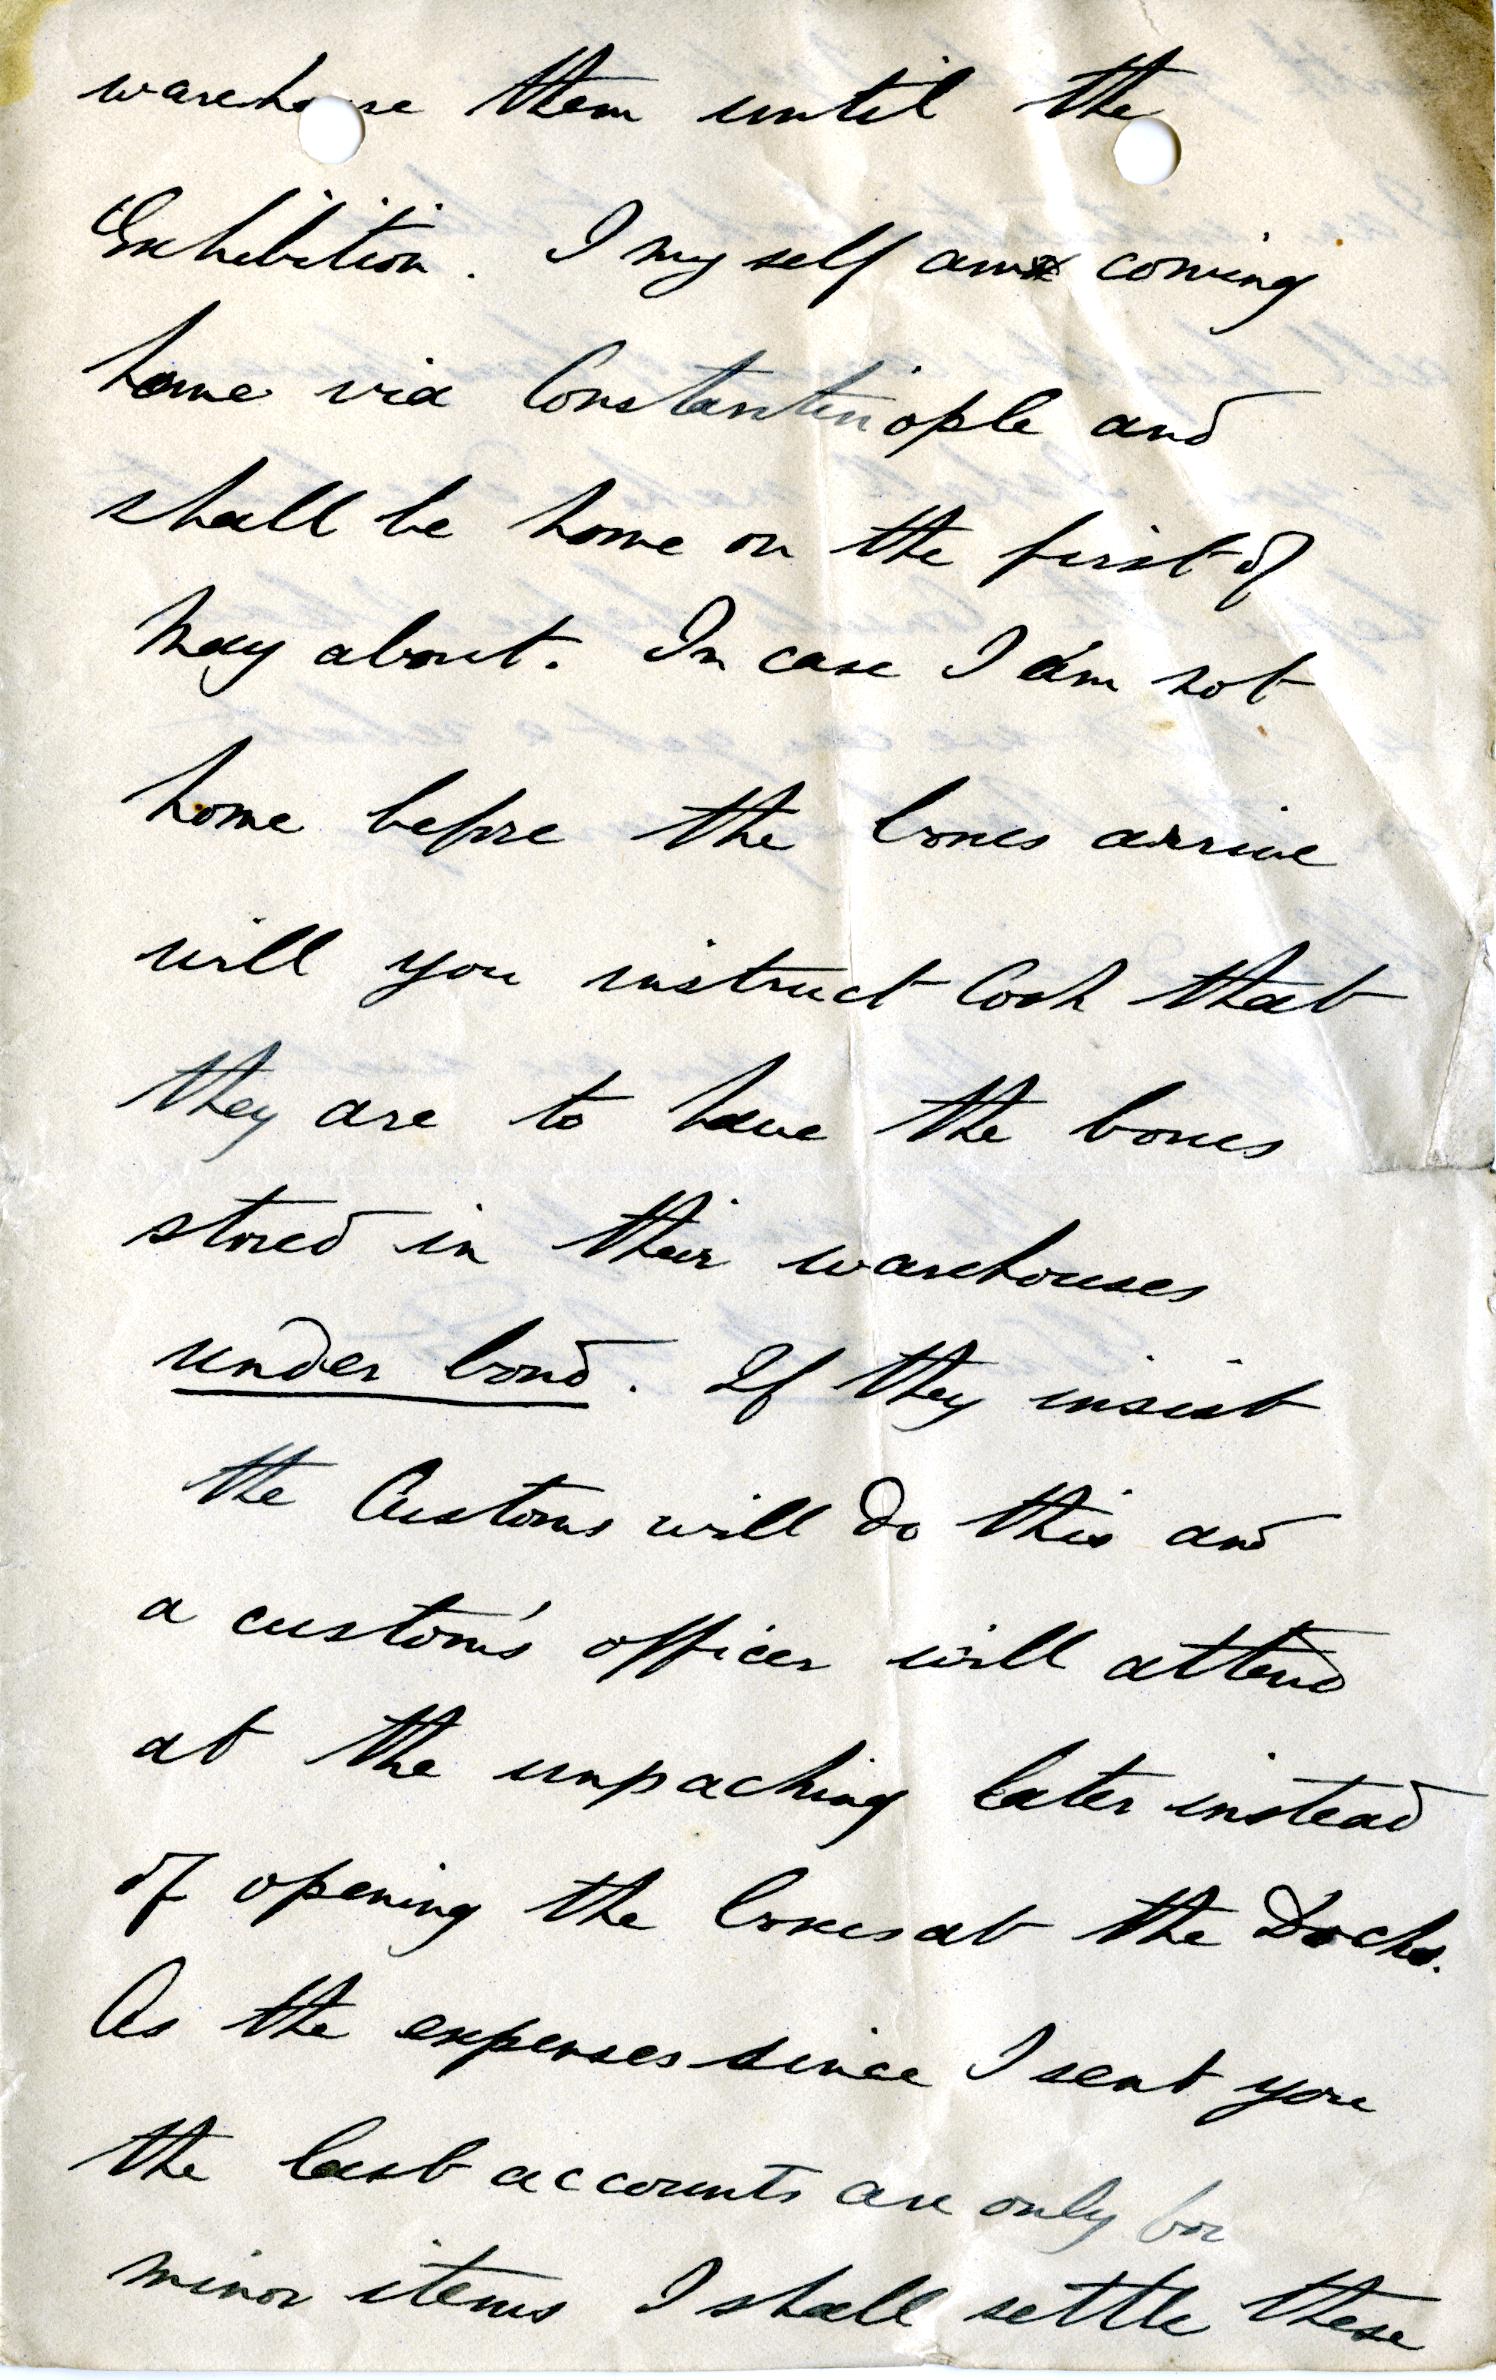 warehouse them until the
Exhibition. I myself am coming
home via Constantinople and
shall be home on the first of
May about. In case I am not
home before the boxes arrive
will you instruct Cook that
they are to have the boxes
stored in their warehouses
under bond. If they insist
the Customs will do this and
a custom's officer will attend
at the unpacking later instead
of opening the boxes at the Docks.
As the expenses since I sent you
the last accounts are only for
minor items I shall settle these